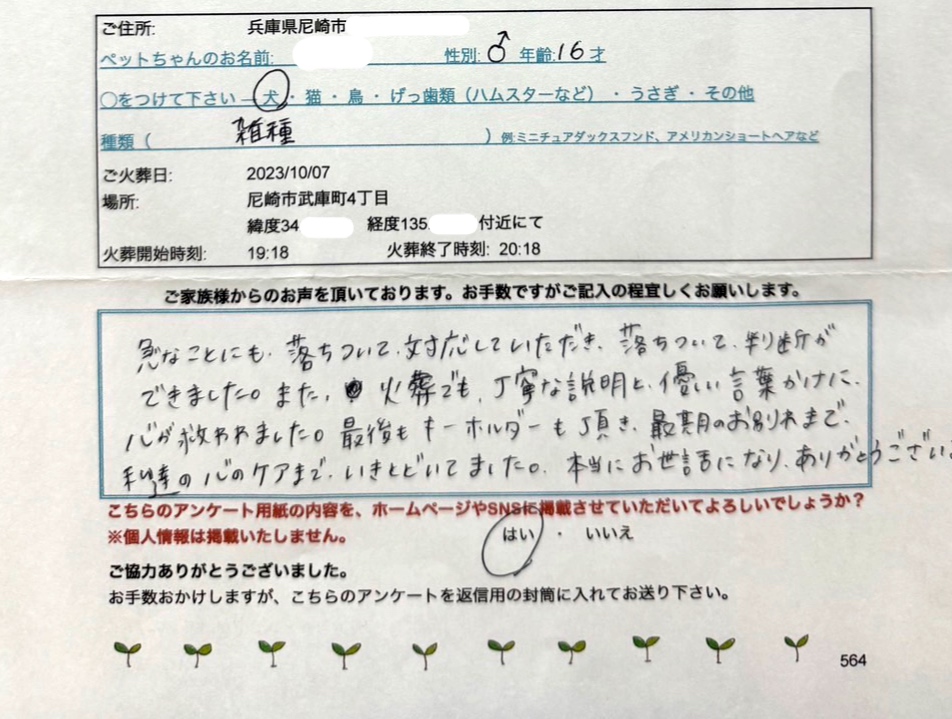 ご住所: 兵庫県尼崎市
ペットちゃんのお名前: 性別: ♂ 年齢: 16才
〇をつけて下さい – 犬・猫・鳥・げっ歯類（ハムスターなど）・うさぎ・その他
種類（ 雑種 ）例:ミニチュアダックスフンド、アメリカンショートヘアなど
ご火葬日: 2023/10/07
場所: 尼崎市武庫町4丁目
緯度34 経度135 付近にて
火葬開始時刻: 19:18 火葬終了時刻: 20:18
ご家族様からのお声を頂いております。お手数ですがご記入の程宜しくお願いします。
急なことにも、落ちついて、対応していただき、落ちついて、判断が
できました。また、火葬でも、丁寧な説明と、優しい言葉かけに、
心が救われました。最後もキーホルダーも頂き、最期のお別れまで、
私達の心のケアまで、いきとどいてました。本当にお世話になり、ありがとうござい
こちらのアンケート用紙の内容を、ホームページやSNSに掲載させていただいてよろしいでしょうか？
※個人情報は掲載いたしません。 はい ・ いいえ
ご協力ありがとうございました。
お手数おかけしますが、こちらのアンケートを返信用の封筒に入れてお送り下さい。
564